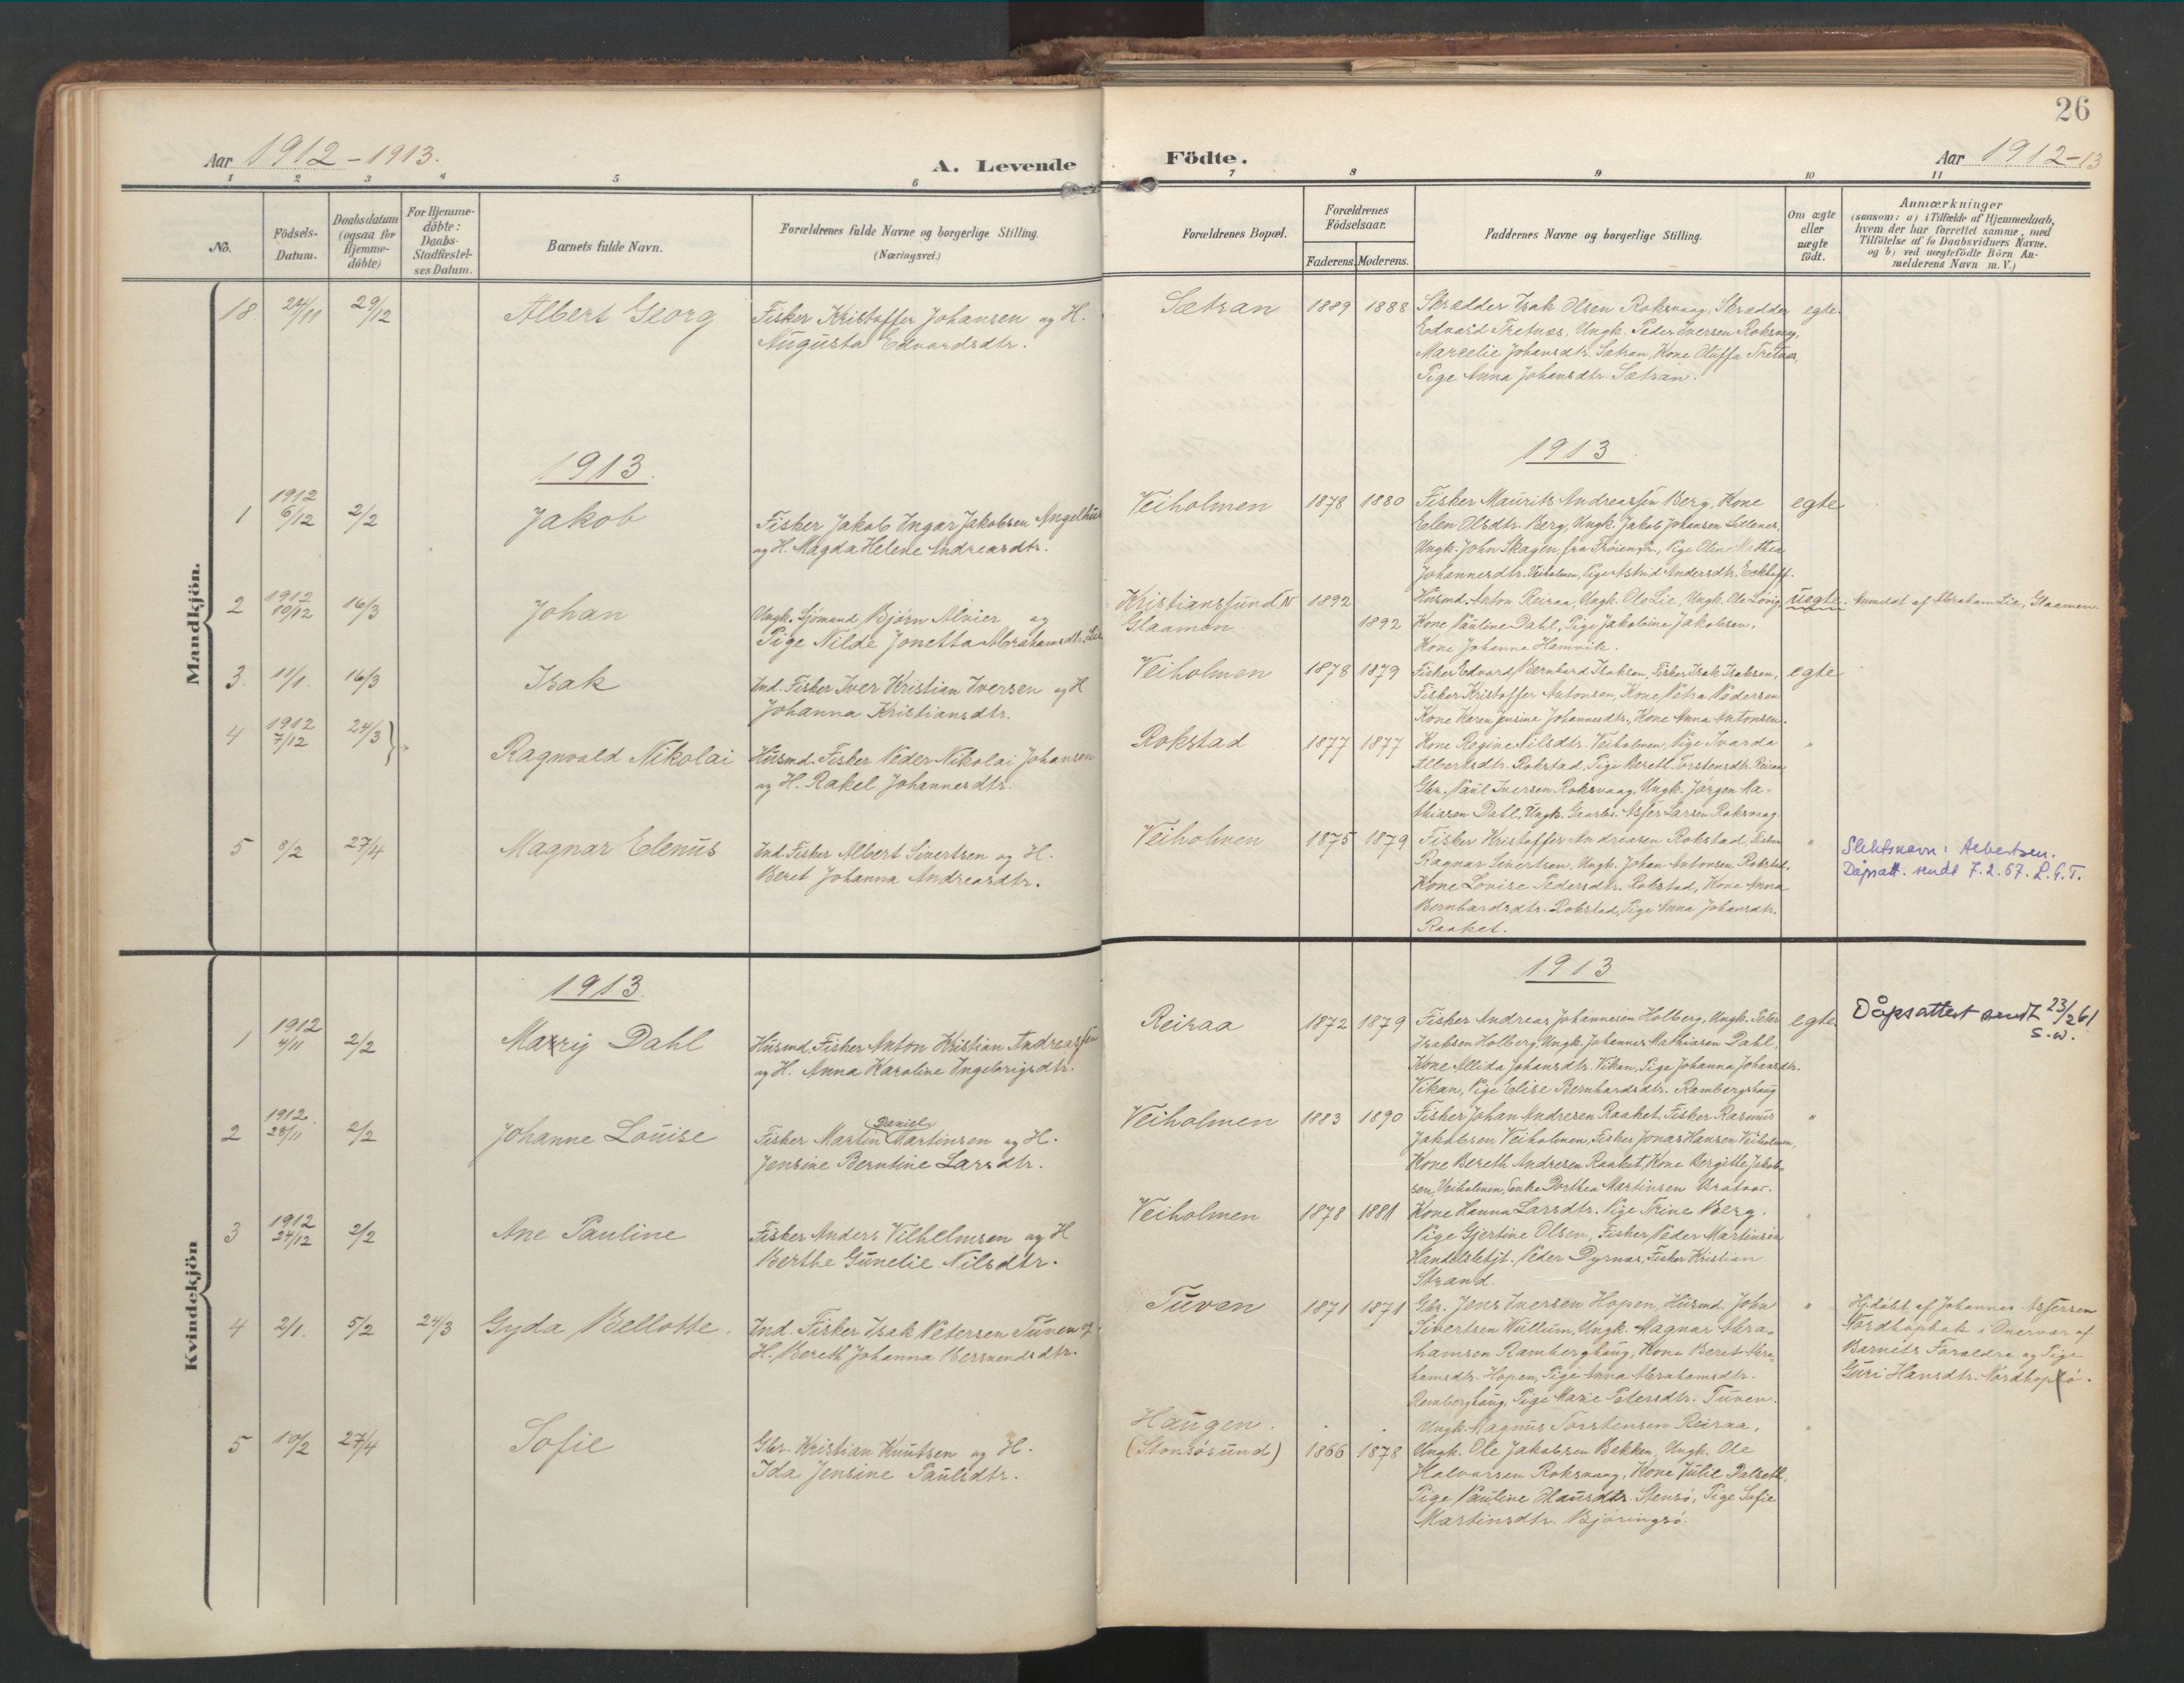 26
Aar 1912-1913.
A. Levende
Födte.
Aar 1912-13
1 2 3 4 5 6 7 8 9 10 11
No.
Födsels-
Datum.
Daabsdatum
(ogsaa for
Hjemme-
döbte)
For Hjemme-
döbte:
Daabs-
Stadfæstel-
ses Datum.
Barnets fulde Navn.
Forældrenes fulde Navne og borgerlige Stilling.
(Næringsvei.)
Forældrenes Bopæl.
Forældrenes
Födselsaar.
Faderens. Moderens.
Faddernes Navne og borgerlige Stilling.
Om ægte
eller
uægte
födt.
Anmærkninger
(saasom: a) i Tilfælde af Hjemmedaab,
hvem der har forrettet samme, med
Tilföielse af to Daabsvidners Navne,
og b) ved uægtefödte Börn An-
melderens Navn m. V.)
Mandkjön.
18 24/11 29/12 Albert Georg
Fisker Kristoffer Johansen og H.
Augusta Edvardsdtr.
Sætran 1889 1888
Skrædder Isak Olsen Roksvaag, Skrædder
Edvard Tretnes, Ungk. Peder Iversen Roksvaag,
Marcelie Johansdtr. Sætran, Kone Oluffa Tretnes,
Pige Anna Johansdtr. Sætran.
egte.
1913.
1913
1 1912 6/12 2/2 Jakob
Fisker Jakob Ingar Jakobsen Angelhus
og H. Magda Helene Andreasdtr.
Veiholmen 1878 1880
Fisker Maurits Andreassen Berg, Kone
Elen Olsdtr. Berg, Ungk. Jakob Johansen
Ungk. John Skagen, fra Frøien, Pige Oline Mathea
Johannesdtr. Veiholmen, Pige Astrid Andersdtr. Eckhoff.
egte
2 1912 10/12 16/3 Johan
Ungk. Sjømand Bjørn Alvier og
Pige Nilde Jonetta Abrahamsdtr. Lie
Kristiansund N 1892
Glaamen 1892
Husmd. Anton Reiraa, Ungk. Ole Lie, Ungk. Ole
Kone Pauline Dahl, Pige Jakobine Jakobsen,
Kone Johanna Hamvik.
uegte.
Anmeldt af Abraham Lie, Glaamen.
3. 11/1. 16/3 Isak
Ind. Fisker Iver Kristian Iversen og H
Johanna Kristiansdtr.
Veiholmen 1878 1879
Fisker Edvard Bernhard Isaksen, Fisker Isak Isaksen,
Fisker Kristoffer Antonsen, Kone Petra Pedersen
Kone Karen Jensine Johannesdtr., Kone Anna Antonsen.
egte
4 1912 7/12 24/3 Ragnvald Nikolai
Husmd. Fisker Peder Nikolai Johansen
og H. Rakel Johannesdtr.
Rokstad 1877 1877
Kone Regine Nilsdtr. Veiholmen, Pige Ivarda
Albertsdtr. Rokstad, Pige Bereth Torstensdtr. Reiraa
Gbr. Paul Iversen Roksvaag, Ungk. Jørgen Ma-
thiasen Dahl, Ungk. Gaarbr. Asfer Larsen Roksvaag
"
5 8/2 27/4 Magnar Edenus
Ind. Fisker Albert Sivertsen og H.
Beret Johanna Andreasdtr.
Veiholmen 1875 1879
Fisker Kristoffer Andreasen Rokstad, Fisker
Ragnar Sivertsen, Ungk. Johan Antonsen Rokstad,
Kone Lovise Pedersdtr. Rokstad, Kone Anna
Bernhardsdtr. Rokstad, Pige Anna Johansdtr.
Raaket.
"
Slektsnavn: Albertsen.
Dåpsatt. sendt 7.2.67. L.G.T.
Kvindekjön
1913.
1913
1 1912 4/11 2/2 Marry Dahl
Husmd. Fisker Anton Kristian Andreassen
og H. Anna Karoline Ingebrigsdtr.
Reiraa 1872 1879
Fisker Andreas Johannesen Holberg, Ungk. Peter
Isaksen Holberg, Ungk. Johannes Mathiasen Dahl,
Kone Allida Johansdtr. Vikan, Pige Johanna Johansdtr.
Vikan, Pige Elise Bernhardsdtr. Ramberghaug
egte.
Dåpsattest sendt 23/2 61
S.W.
2 1912 28/11 2/2 Johanne Louise
Fisker Martin Daniel Martinsen og H.
Jensine Berntine Larsdtr.
Veiholmen 1883 1890
Fisker Johan Andresen Raaket, Fisker Rasmus
Jakobsen Veiholmen, Fisker Jonas Hansen Veiholmen,
Kone Bereth Andresen Raaket, Kone Bergitte Jakob-
sen, Veiholmen, Enke Dorthea Martinsen Bratvær.
"
3 1912 24/12 2/2 Ane Pauline
Fisker Anders Vilhelmsen og H
Berthe Gunelie Nilsdtr.
Veiholmen 1878 1881
Kone Hanna Larsdtr. Pige Trine Berg.
Pige Gjertine Olsen, Fisker Peder Martinsen
Handelsbetjt. Peder Dyrnes, Fisker Kristian
Strand.
4 2/1. 5/2 24/3 Gyda Bellotte.
Ind. Fisker Isak Petersen Tuven og
H. Bereth Johanna Bersvendsdtr.
Tuven 1871 1871
Gbr. Jens Iversen Hopen, Husmd. John
Sivertsen Wullum, Ungk. Magnar Abra-
hamsen Ramberghaug, Kone Beret Abra-
hamsdtr. Hopen, Pige Anna Abrahamsdtr.
Ramberghaug, Pige Marie Petersdtr. Tuven.
"
Hj.døbt af Johannes Asfersen
Nordhopbak i Overvær af
Barnets Forældre og Pige
Guri Hansdtr. Nordhopsø.
5 10/2 27/4 Sofie
Gbr. Kristian Knutsen og H.
Ida Jensine Paulsdtr.
Haugen.
(Storøsund) 1866 1878
Ungk. Magnus Torstensen Reiraa,
Ungk. Ole Jakobsen Bakken, Ungk. Ole
Halvorsen Roksvaag, Kone Julie Dalseth,
Pige Pauline Olausdtr. Stensø, Pige Sofie
Martinsdtr. Bjøringsø.
"